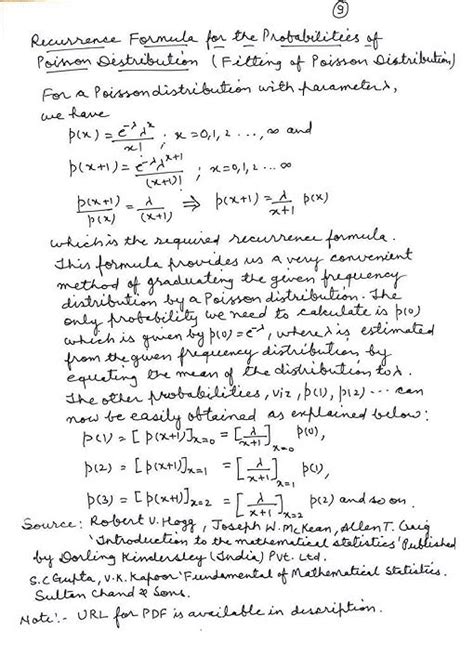 ⑨
Recurrence Formula for the Probabilities of
Poisson Distribution (Fitting of Poisson Distribution)
For a Poisson distribution with parameter λ,
we have
p(x) = e^{-λ} λ^x / x! ; x = 0,1,2 ..., ∞ and
p(x+1) = e^{-λ} λ^{x+1} / (x+1)! ; x = 0,1,2 ... ∞
p(x+1) / p(x) = λ / (x+1) ⇒ p(x+1) = λ / x+1 p(x)
which is the required recurrence formula.
This formula provides us a very convenient
method of graduating the given frequency
distribution by a Poisson distribution. The
only probability we need to calculate is p(0)
which is given by p(0) = e^{-λ}, where λ is estimated
from the given frequency distribution by
equating the mean of the distribution to λ.
The other probabilities, viz, p(1), p(2) ... can
now be easily obtained as explained below:
p(1) = [p(x+1)]_{x=0} = [λ / x+1]_{x=0} p(0),
p(2) = [p(x+1)]_{x=1} = [λ / x+1]_{x=1} p(1),
p(3) = [p(x+1)]_{x=2} = [λ / x+1]_{x=2} p(2) and so on.
Source: Robert V. Hogg, Joseph W. McKean, Allen T. Craig
'Introduction to the mathematical statistics' Published
by Dorling Kindersley (India) Pvt. Ltd.
S.C Gupta, V.K. Kapoor 'Fundamental of Mathematical Statistics.
Sultan Chand & Sons.
Note:- URL for PDF is available in description.